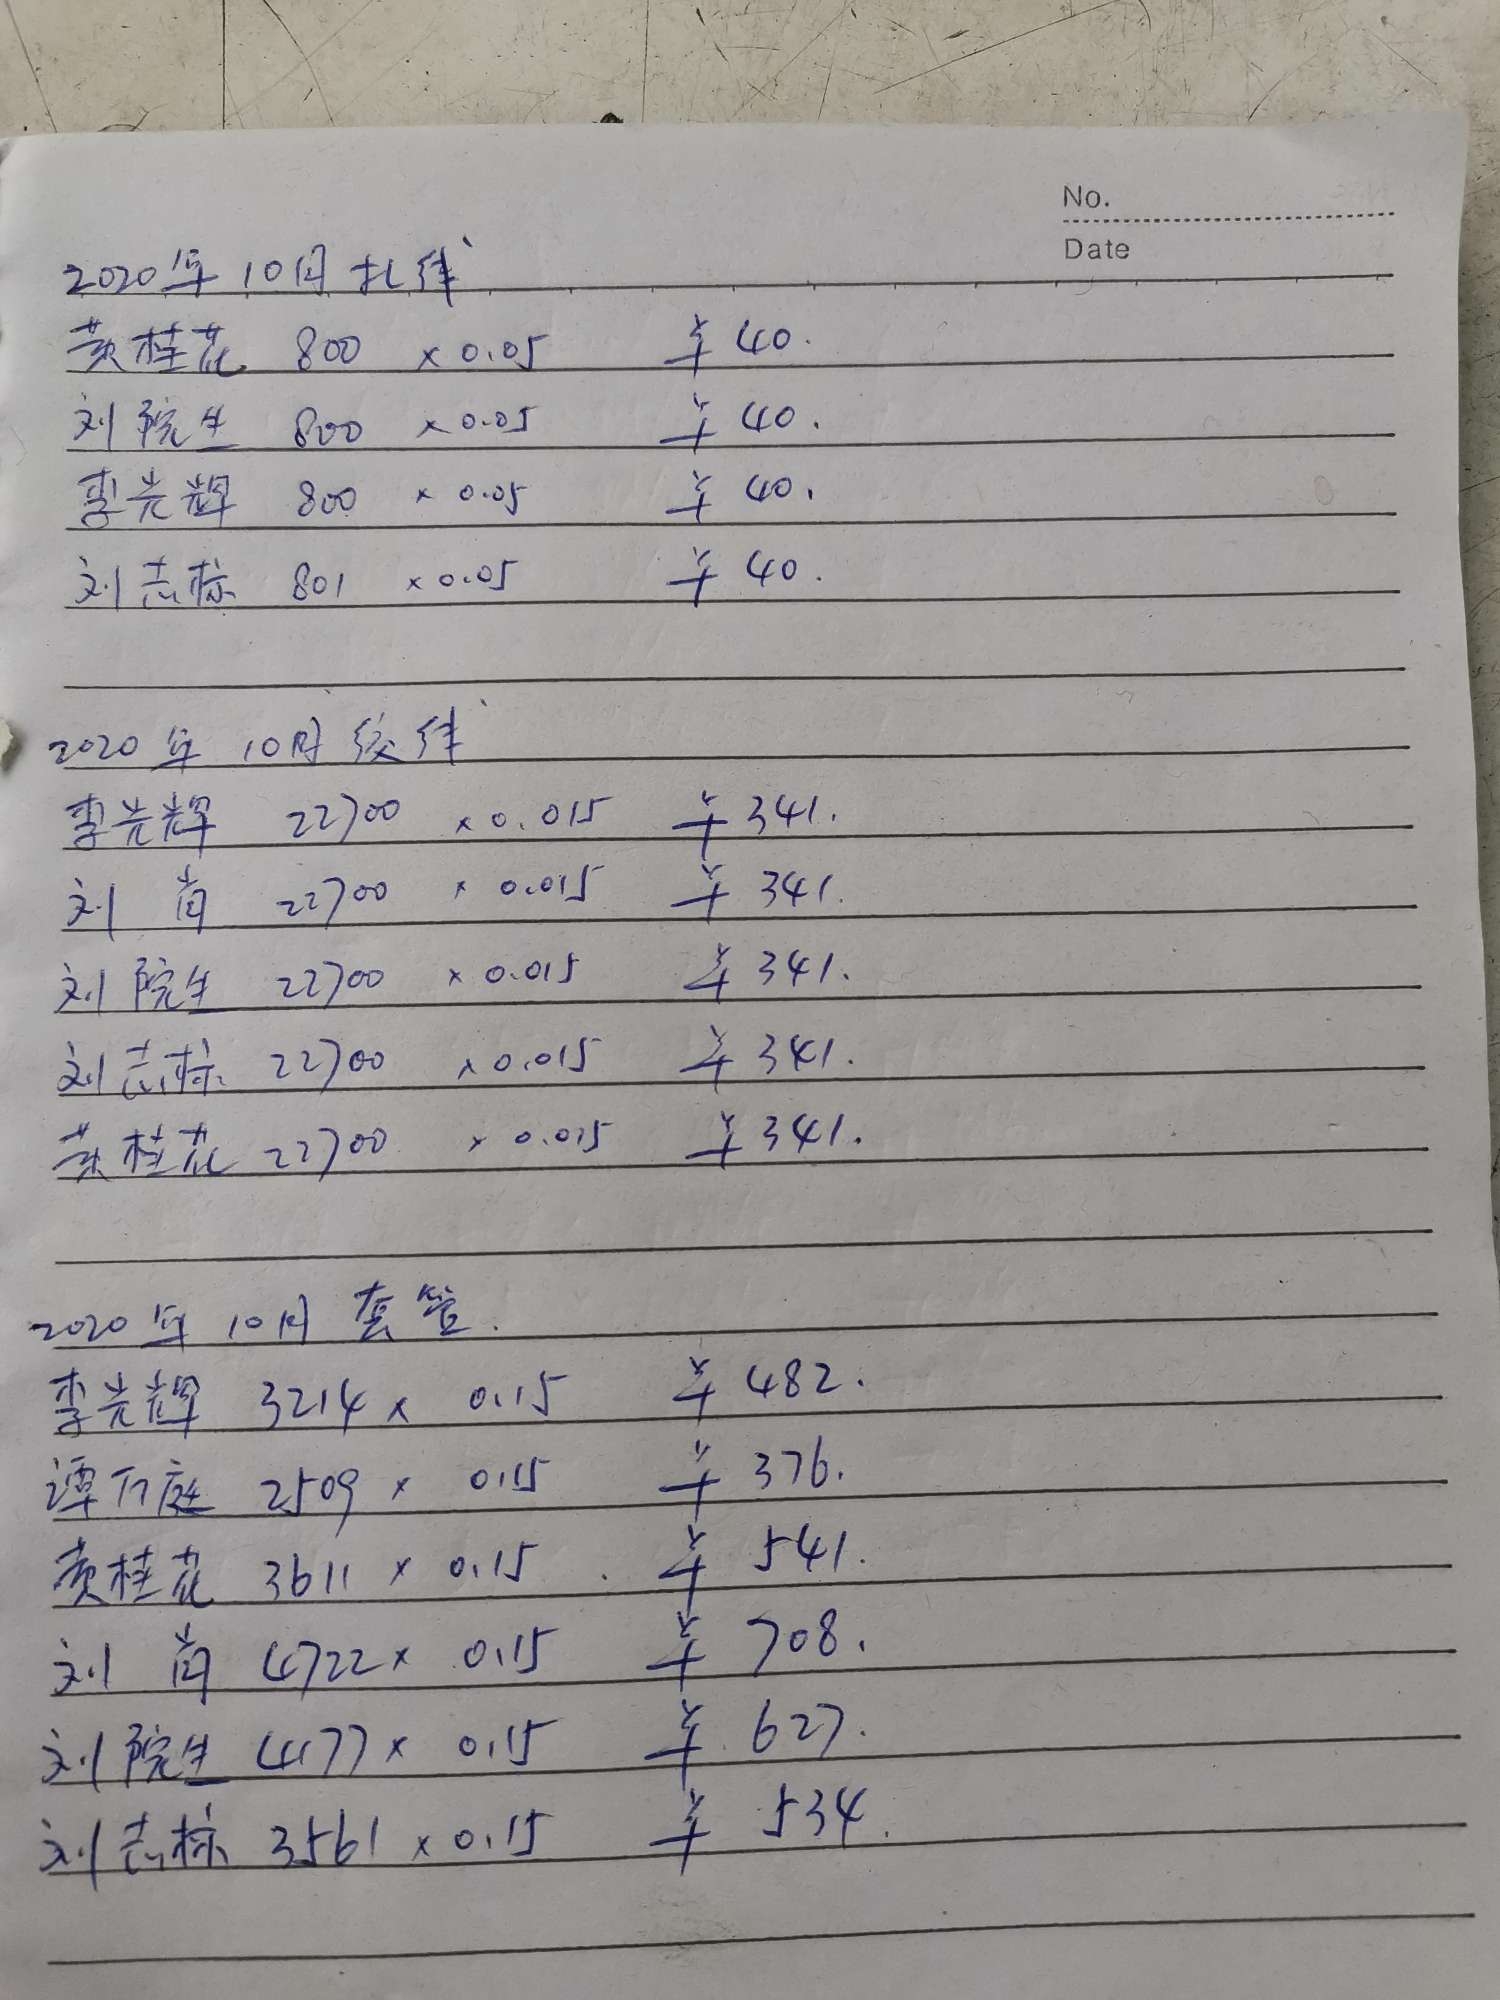 No.
Date
2020年10月扎线
黄桂花 800 × 0.05 ¥ 40.
刘院生 800 × 0.05 ¥ 40.
李光辉 800 × 0.05 ¥ 40.
刘志标 801 × 0.05 ¥ 40.
2020年10月绞线
李光辉 22700 × 0.015 ¥ 341.
刘 22700 × 0.015 ¥ 341.
刘院生 22700 × 0.015 ¥ 341.
刘志标 22700 × 0.015 ¥ 341.
黄桂花 22700 × 0.015 ¥ 341.
2020年10月套管.
李光辉 3214 × 0.15 ¥ 482.
谭万庭 2509 × 0.15 ¥ 376.
黄桂花 3611 × 0.15 ¥ 541.
刘 4722 × 0.15 ¥ 708.
刘院生 4177 × 0.15 ¥ 627.
刘志标 3561 × 0.15 ¥ 534.